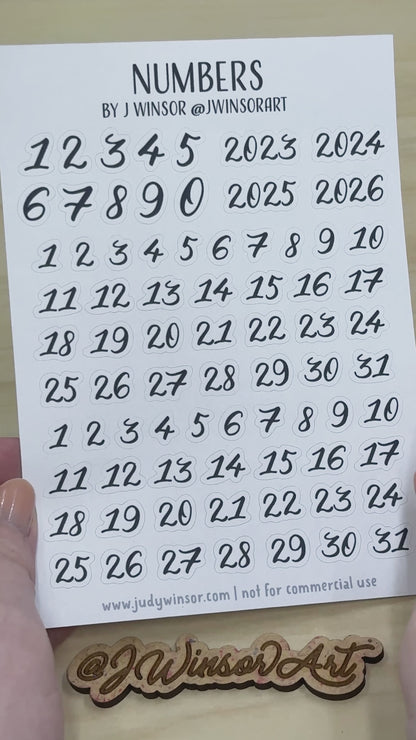 NUMBERS
BY J WINSOR @JWINSORART
1 2 3 4 5 2023 2024
6 7 8 9 0 2025 2026
1 2 3 4 5 6 7 8 9 10
11 12 13 14 15 16 17
18 19 20 21 22 23 24
25 26 27 28 29 30 31
1 2 3 4 5 6 7 8 9 10
11 12 13 14 15 16 17
18 19 20 21 22 23 24
25 26 27 28 29 30 31
www.judywinsor.com | not for commercial use
@JWinsorArt